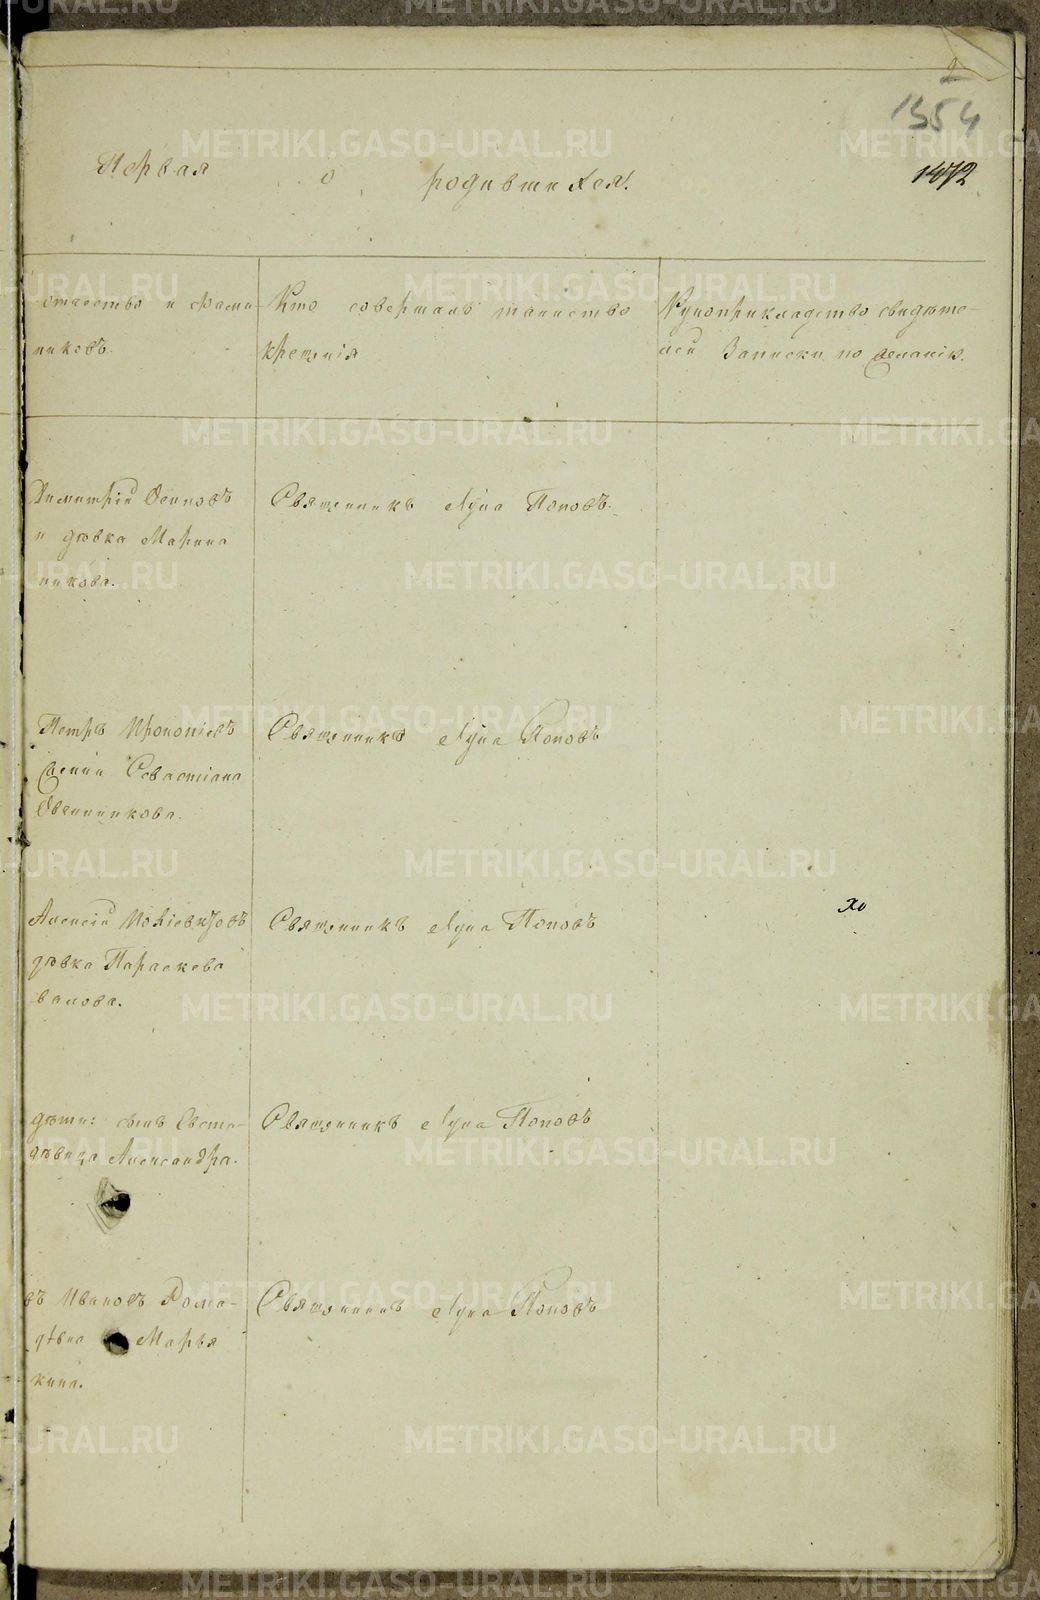 2
1354
1472
Первая о родившихся.
отчество и фами-
ликовъ.
Кто совершалъ таинство
крещенія
Рукоприкладство свидѣте-
лей Записки по желанію.
Димитрій Осиповъ
и дѣвка Марина
никова.
Священникъ Лука Поповъ.
Петръ Прокопіевъ
Севастіана
Овчинникова.
Священникъ Лука Поповъ
Алексій
дѣвка Параскева
валова.
Священникъ Лука Поповъ
дѣти: сынъ Евста-
дѣвица Александра.
Священникъ Лука Поповъ
въ Ивановъ Рома-
дѣвка Марья
кина.
Священникъ Лука Поповъ
METRIKI.GASO-URAL.RU